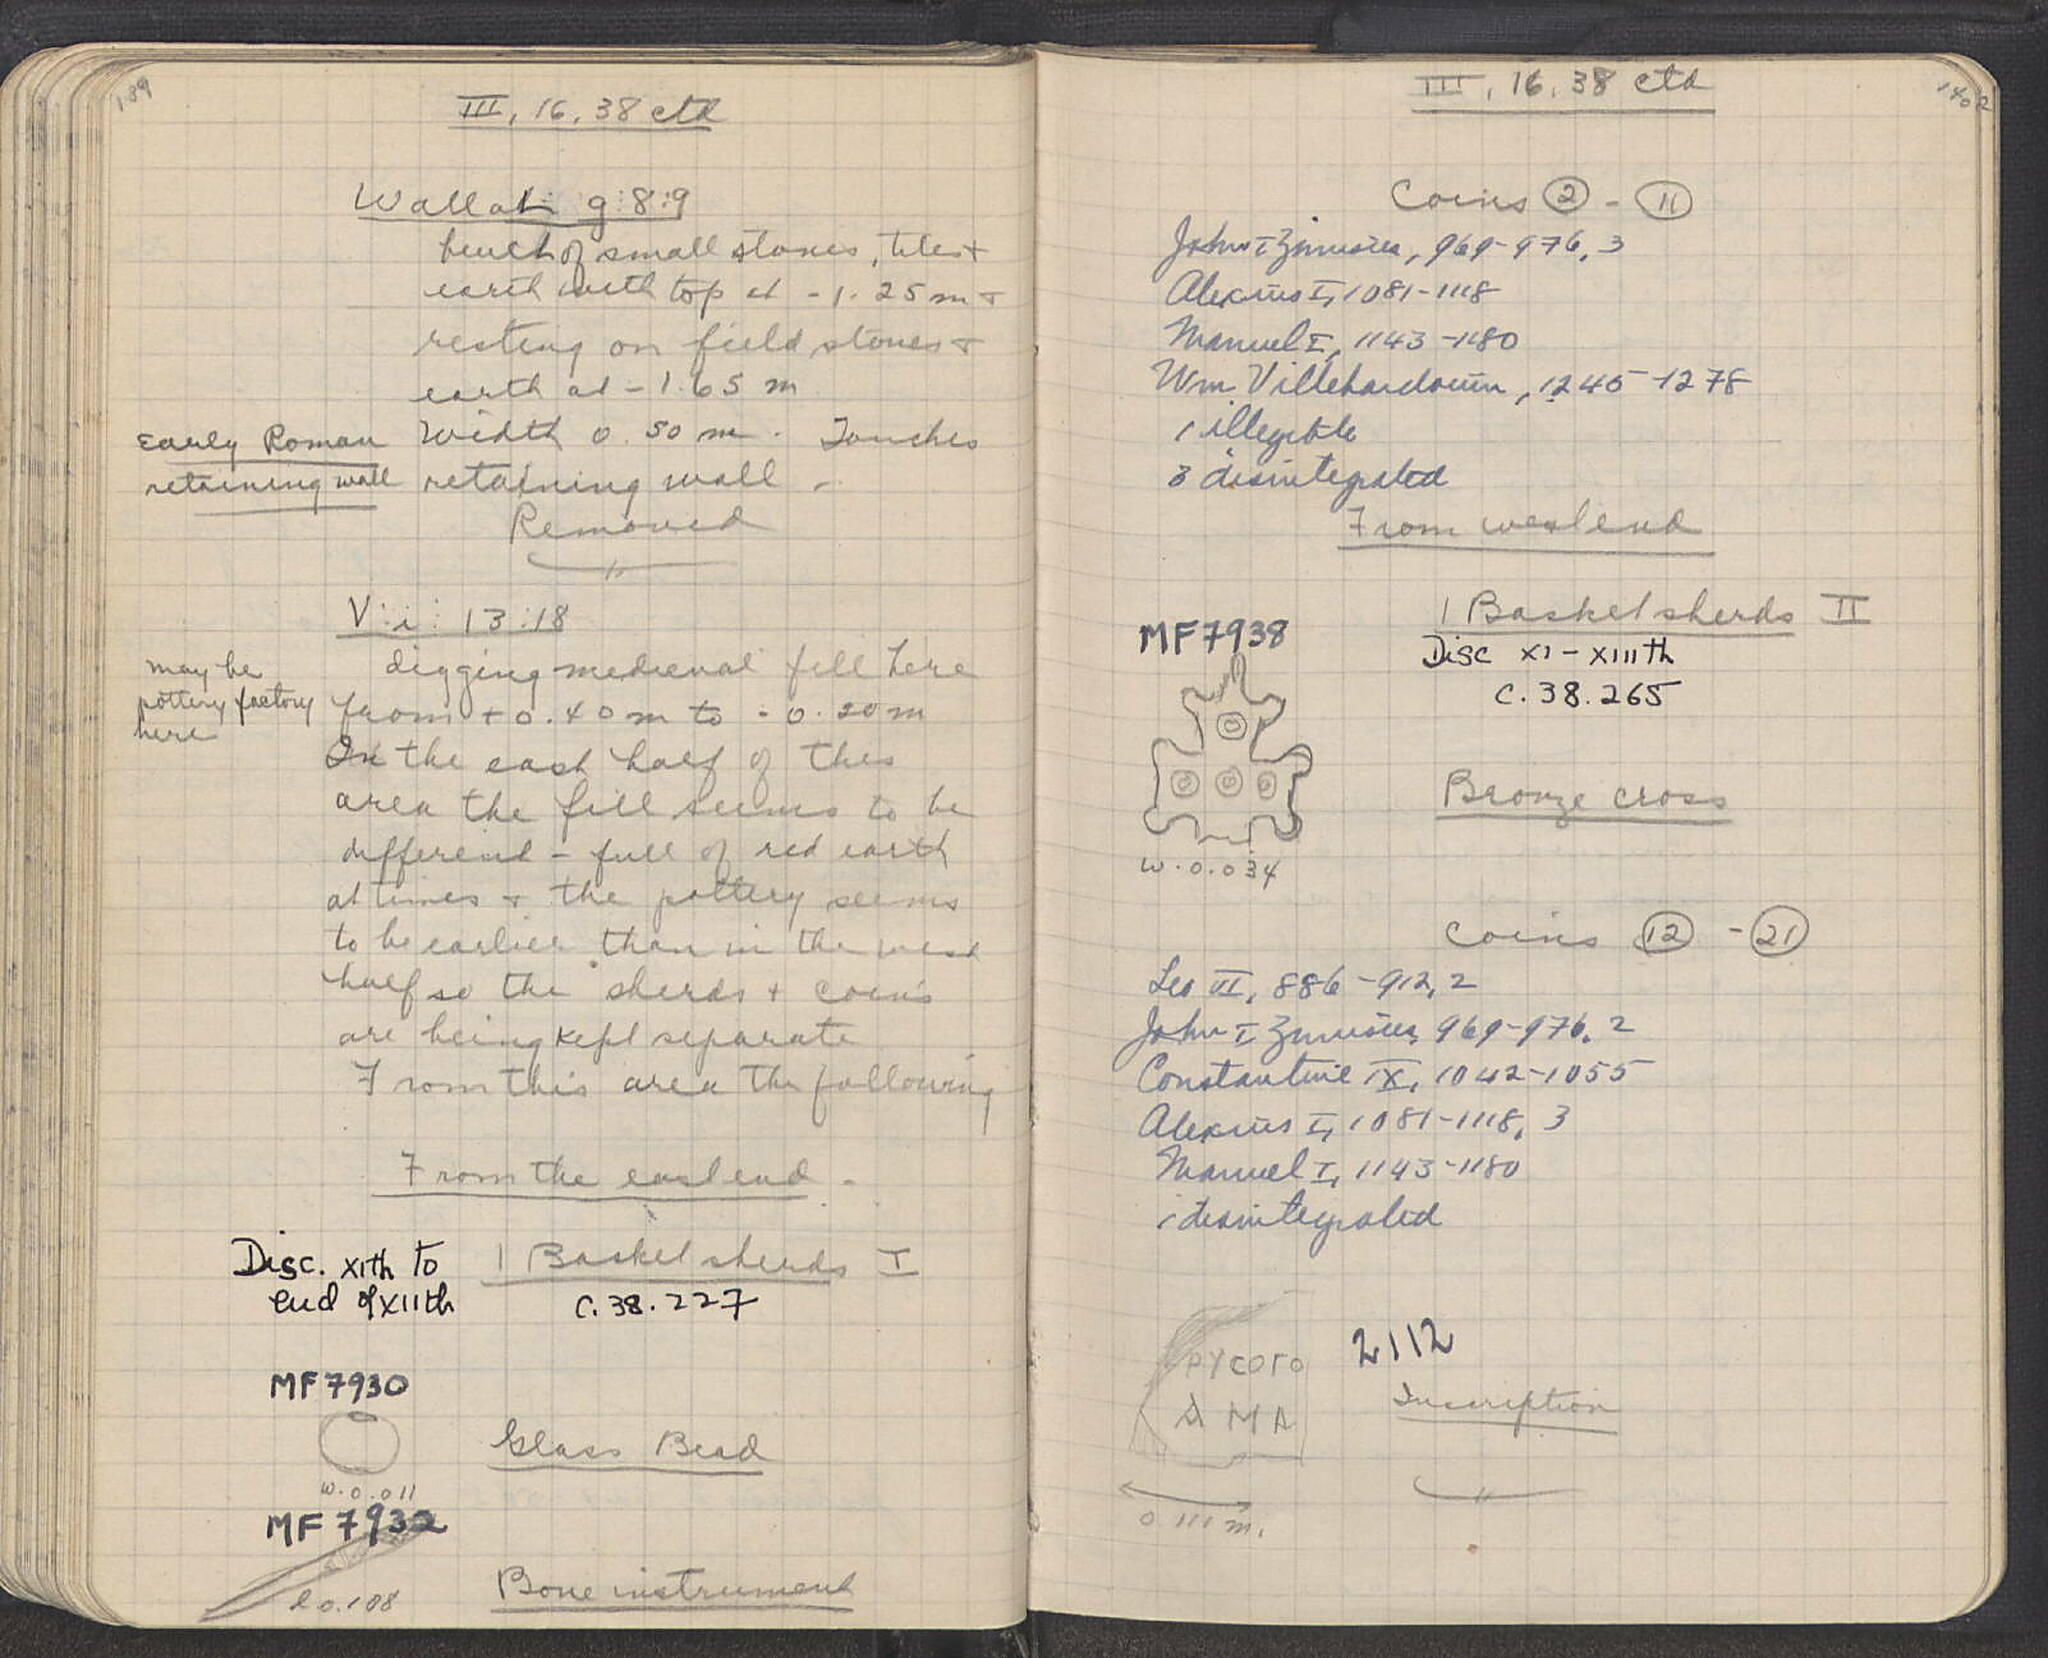 139
III, 16, 38 ctd
Wall at g:8:9
built of small stones, tiles +
earth with top at -1.25 m +
resting on field stones +
earth at -1.65 m
Early Roman
retaining wall
Width 0.50 m. Touches
retaining wall.
Removed
V:i: 13:18
may be
pottery factory
here
digging medieval fill here
from +0.40 m to -0.20 m
In the east half of this
area the fill seems to be
different - full of red earth
at times + the pottery seems
to be earlier than in the west
half so the sherds + coins
are being kept separate
From this area the following
From the east end -
Disc. XIth to
end of XIIth
1 Basket sherds I
C.38.227
MF 7930
Glass Bead
W. 0.011
MF 7932
Bone instrument
l 0.108
III, 16, 38 ctd
Coins 2 - 11
John I Zimisces, 969-976, 3
Alexius I, 1081-1118
Manuel I, 1143-1180
Wm. Villehardouin, 1245-1278
1 illegible
3 disintegrated
From west end
MF 7938
1 Basket sherds II
Disc XI-XIIIth
C.38.265
Bronze cross
W. 0.034
Coins 12 - 21
Leo VI, 886-912, 2
John I Zimisces, 969-976, 2
Constantine IX, 1042-1055
Alexius I, 1081-1118, 3
Manuel I, 1143-1180
1 disintegrated
ΡΥCΟΓΟ
ΔΜΑ
2112
Inscription
0.111 m.